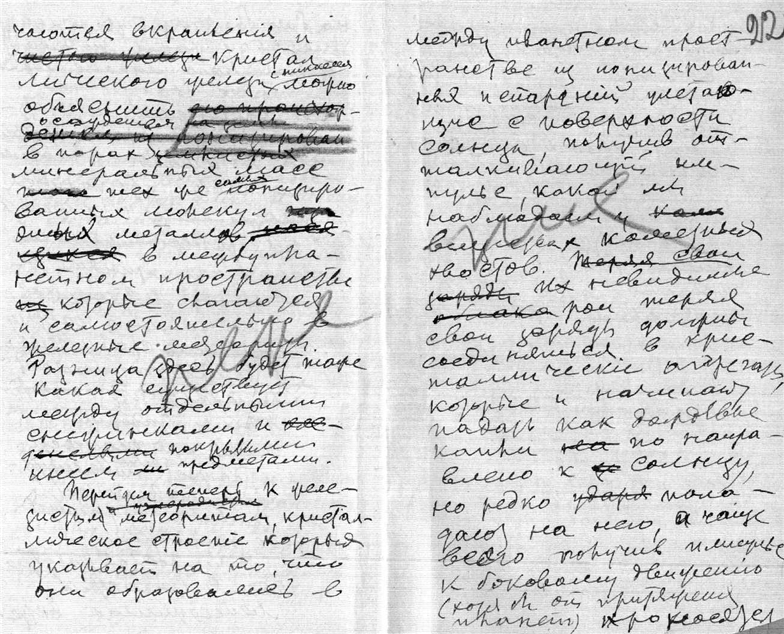 чаются вкрапления и
чистого железа кристал
лического железа можно
объяснить
осаждением на них
в порах
минеральных масс
тех же самых ионизиро-
ванных молекул
металлов
в межпла-
нетном пространстве
которые слагаются
и самостоятельные
железные метеориты.
Разница здесь будет таже
какая существует
между отдельными
снежинками и
покрытыми
инеем предметами.
Перейдем теперь к желе-
зистым метеоритам, кристал-
лическое строение которых
указывает на то, что
они образовались в
22
между планетном прост
ранстве из ионизирован-
ных испарений улетаю-
щих с поверхности
солнца, получив от-
талкивающий им-
пульс, какой мы
наблюдаем и
в кометных
хвостов. Теряя свои
заряды Их невидимые
облака рои теряя
свои заряды должны
соединяться в крис-
таллические агрегаты
которые и начинают
падать как дождевые
капли на по напра-
влению к солнцу,
но редко ударя попа-
дают на него, а чаще
всего получив импульс
к боковому движению
(хотя бы от притяжения
планет) проносятся